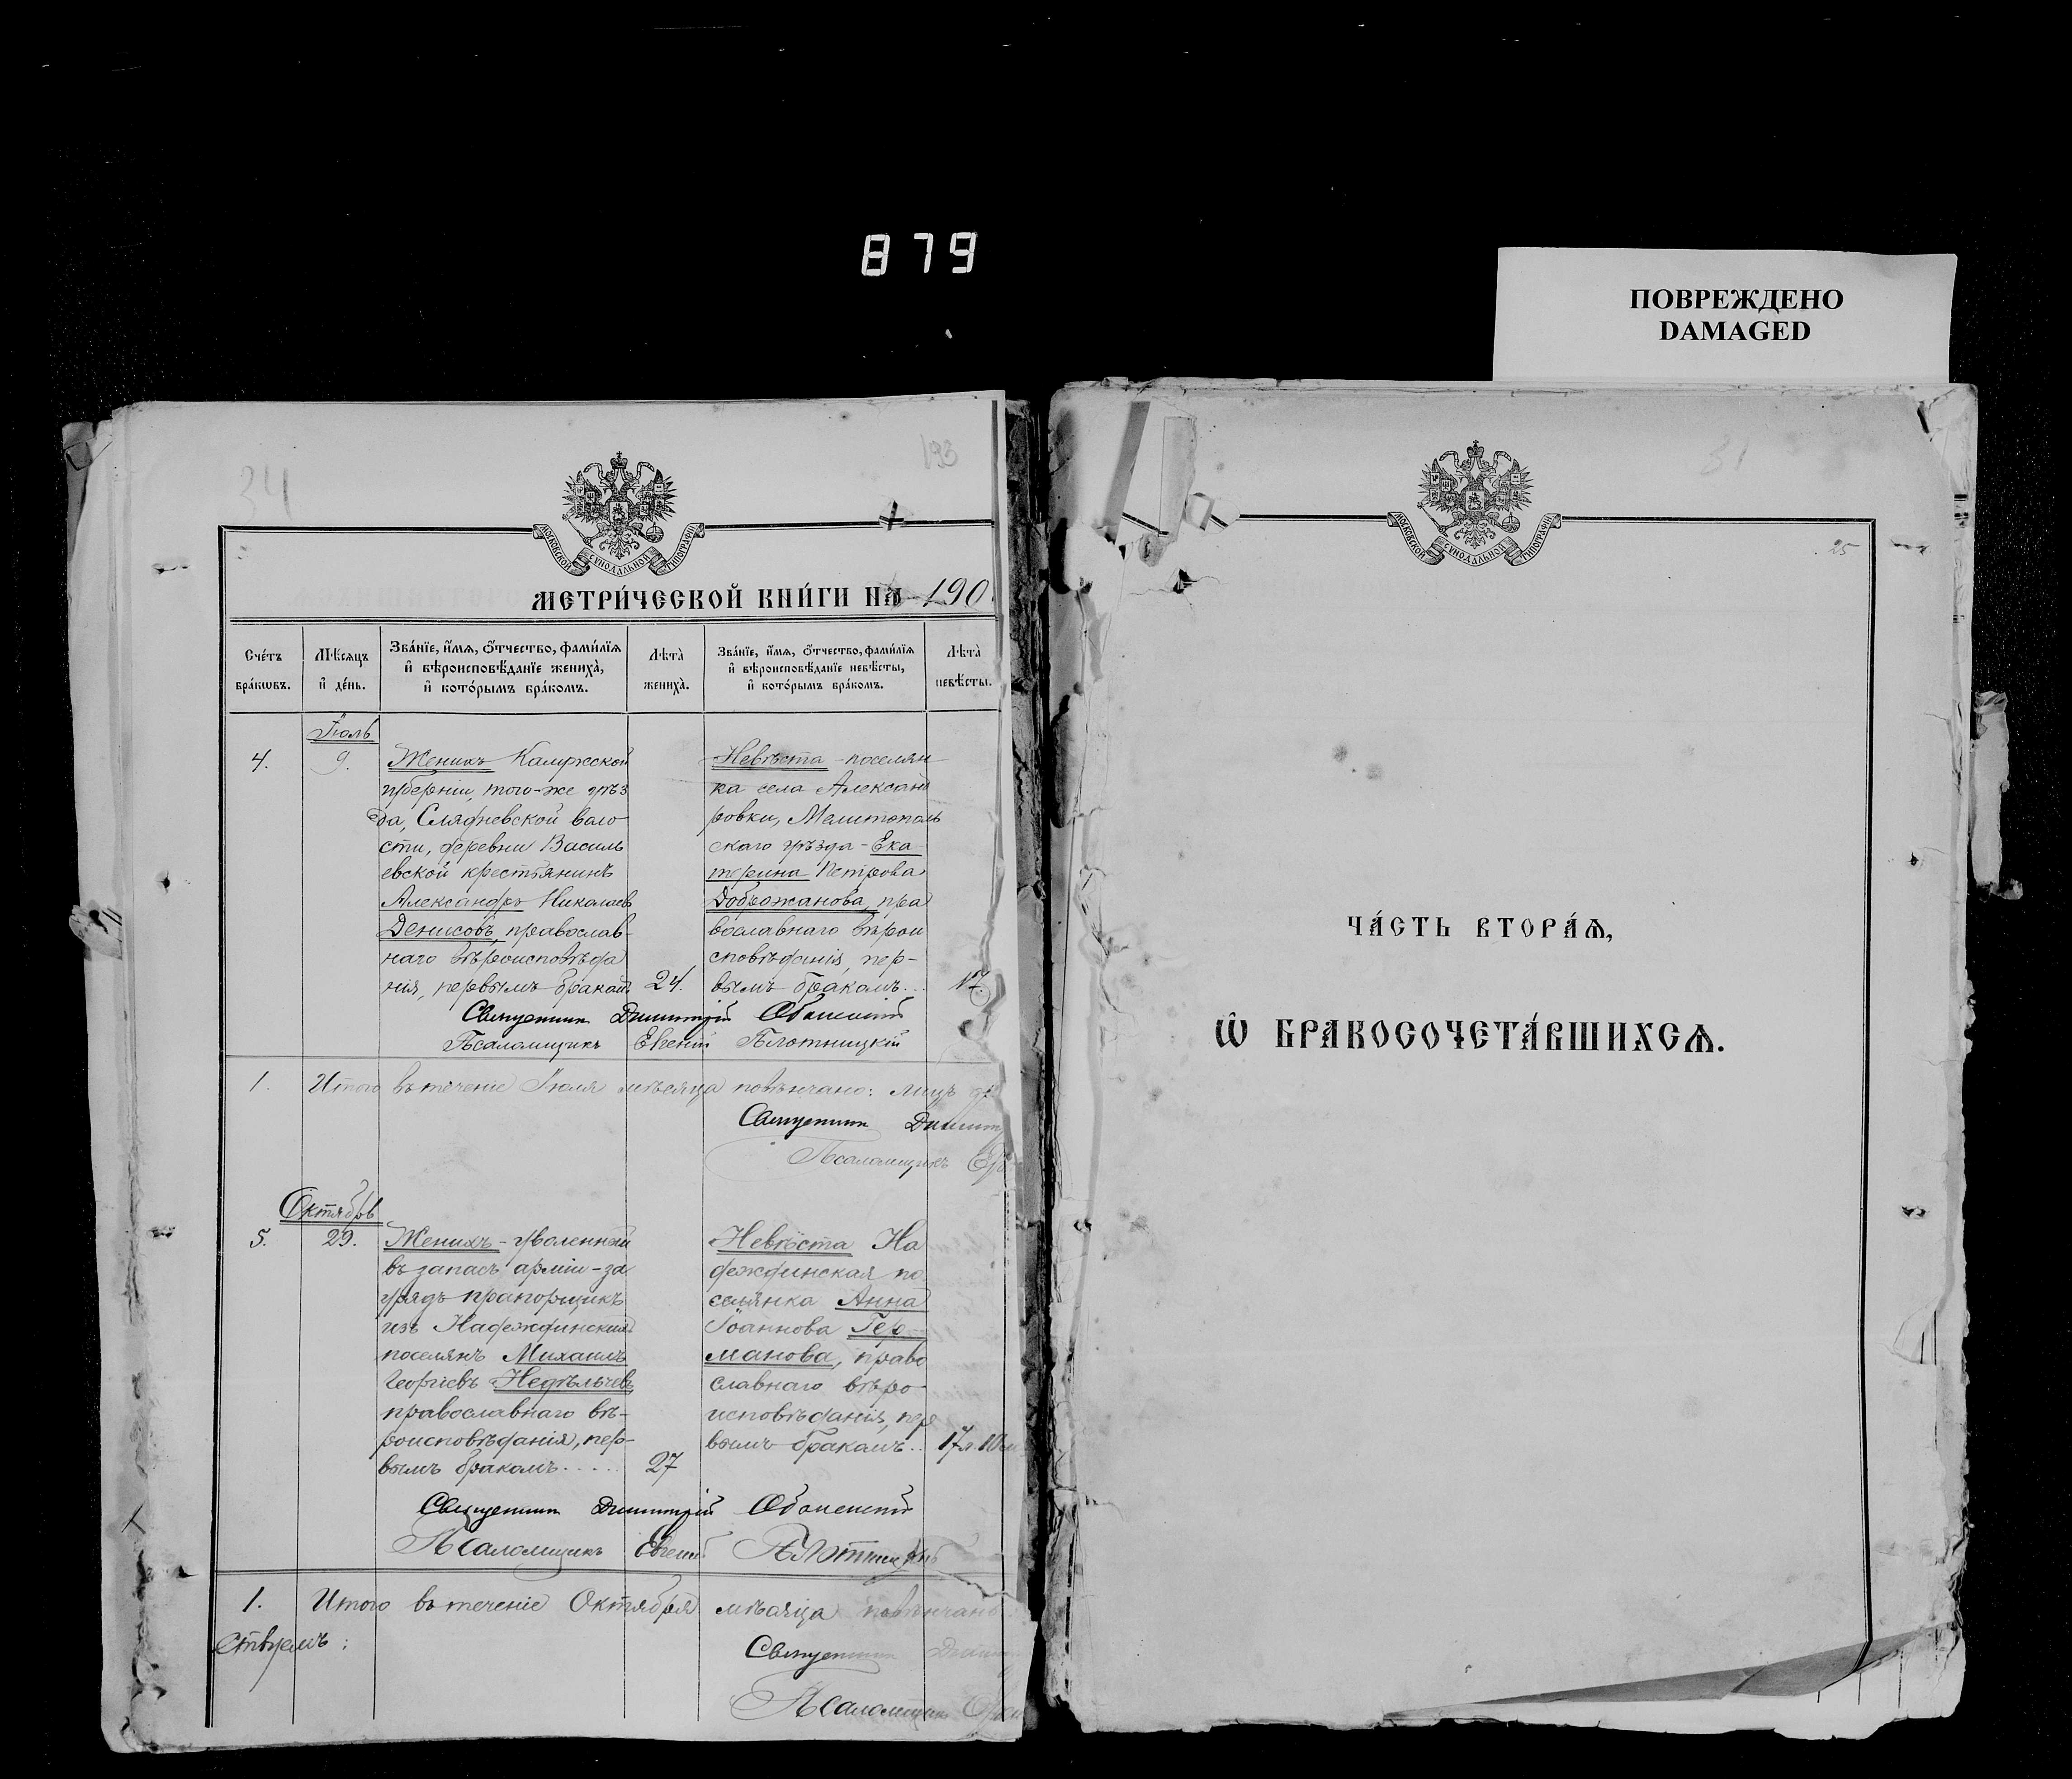 879
ПОВРЕЖДЕНО
DAMAGED
34
193
МОСКОВСКОЙ СѴНОДАЛЬНОЙ ТИПОГРАФІИ
МЕТРИ́ЧЕСКОЙ КНИ́ГИ НА 190
Сче́тъ бра́кѡвъ.
Мѣ́сяцъ и҆ де́нь.
Зва́нїе, и҆́мя, ѻ҆́тчество, фами́лїя и҆ вѣроисповѣ́данїе жениха̀, и҆ кото́рымъ бра́комъ.
Лѣта̀ жениха̀.
Зва́нїе, и҆́мя, ѻ҆́тчество, фами́лїя и҆ вѣроисповѣ́данїе невѣ́сты, и҆ кото́рымъ бра́комъ.
Лѣта̀ невѣ́сты.
Іюль
4.
9.
Женихъ Калужской
губерніи, того-же уѣз
да, Слядневской воло
сти, деревни Василь
евской крестьянинъ
Александръ Николаевъ
Денисовъ, православ-
наго вѣроисповѣда
нія, первымъ бракомъ
24.
Невѣста поселян
ка села Александ
ровки, Мелитополь
скаго уѣзда - Ека
терина Петрова
Доброжанова, пра
вославнаго вѣрои
сповѣданія, пер-
вымъ бракомъ...
17.
Священникъ Димитрій
Псаломщикъ Евгеній Плотницкій
1. Итого въ теченіе Іюля мѣсяца повѣнчано: лицъ
Священникъ Димит
Псаломщикъ
Октябрь
5.
29.
Женихъ - уволенный
въ запасъ арміи - за
урядъ прапорщикъ
изъ Надеждинскихъ
поселянъ Михаилъ
Георгіевъ Недѣльчевъ
православнаго вѣ-
роисповѣданія, пер-
вымъ бракомъ.....
27
Невѣста На
деждинская по
селянка Анна
Іоаннова Гер-
манова, право
славнаго вѣро-
исповѣданія, пер
вымъ бракомъ..
Священникъ Димитрій
Псаломщикъ Евгеній Плотницкій
1. Итого въ теченіе Октября мѣсяца повѣнчано
Священникъ
Псаломщикъ
31
МОСКОВСКОЙ СѴНОДАЛЬНОЙ ТИПОГРАФІИ
25
ЧА́СТЬ ВТОРА́Ѧ,
Ѽ БРАКОСОЧЕТА́ВШИХСѦ.